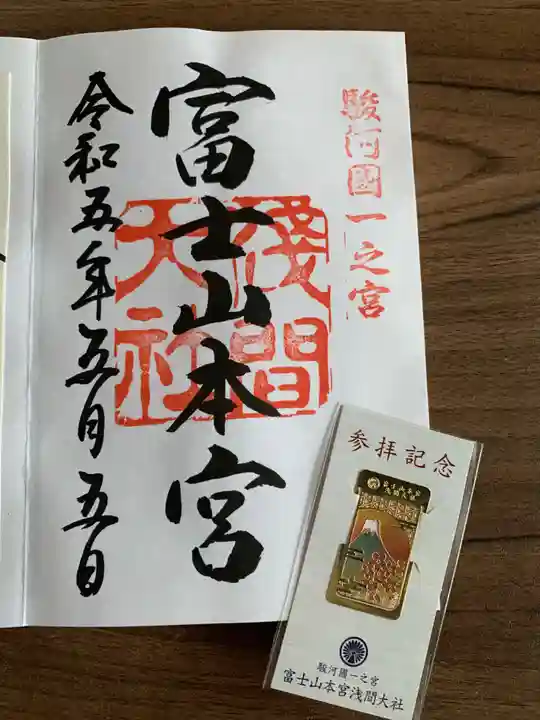 駿河國一之宮
富士山本宮
淺間大社
令和五年五月五日
参拝記念
富士山本宮
浅間大社
駿河國一之宮
富士山本宮浅間大社